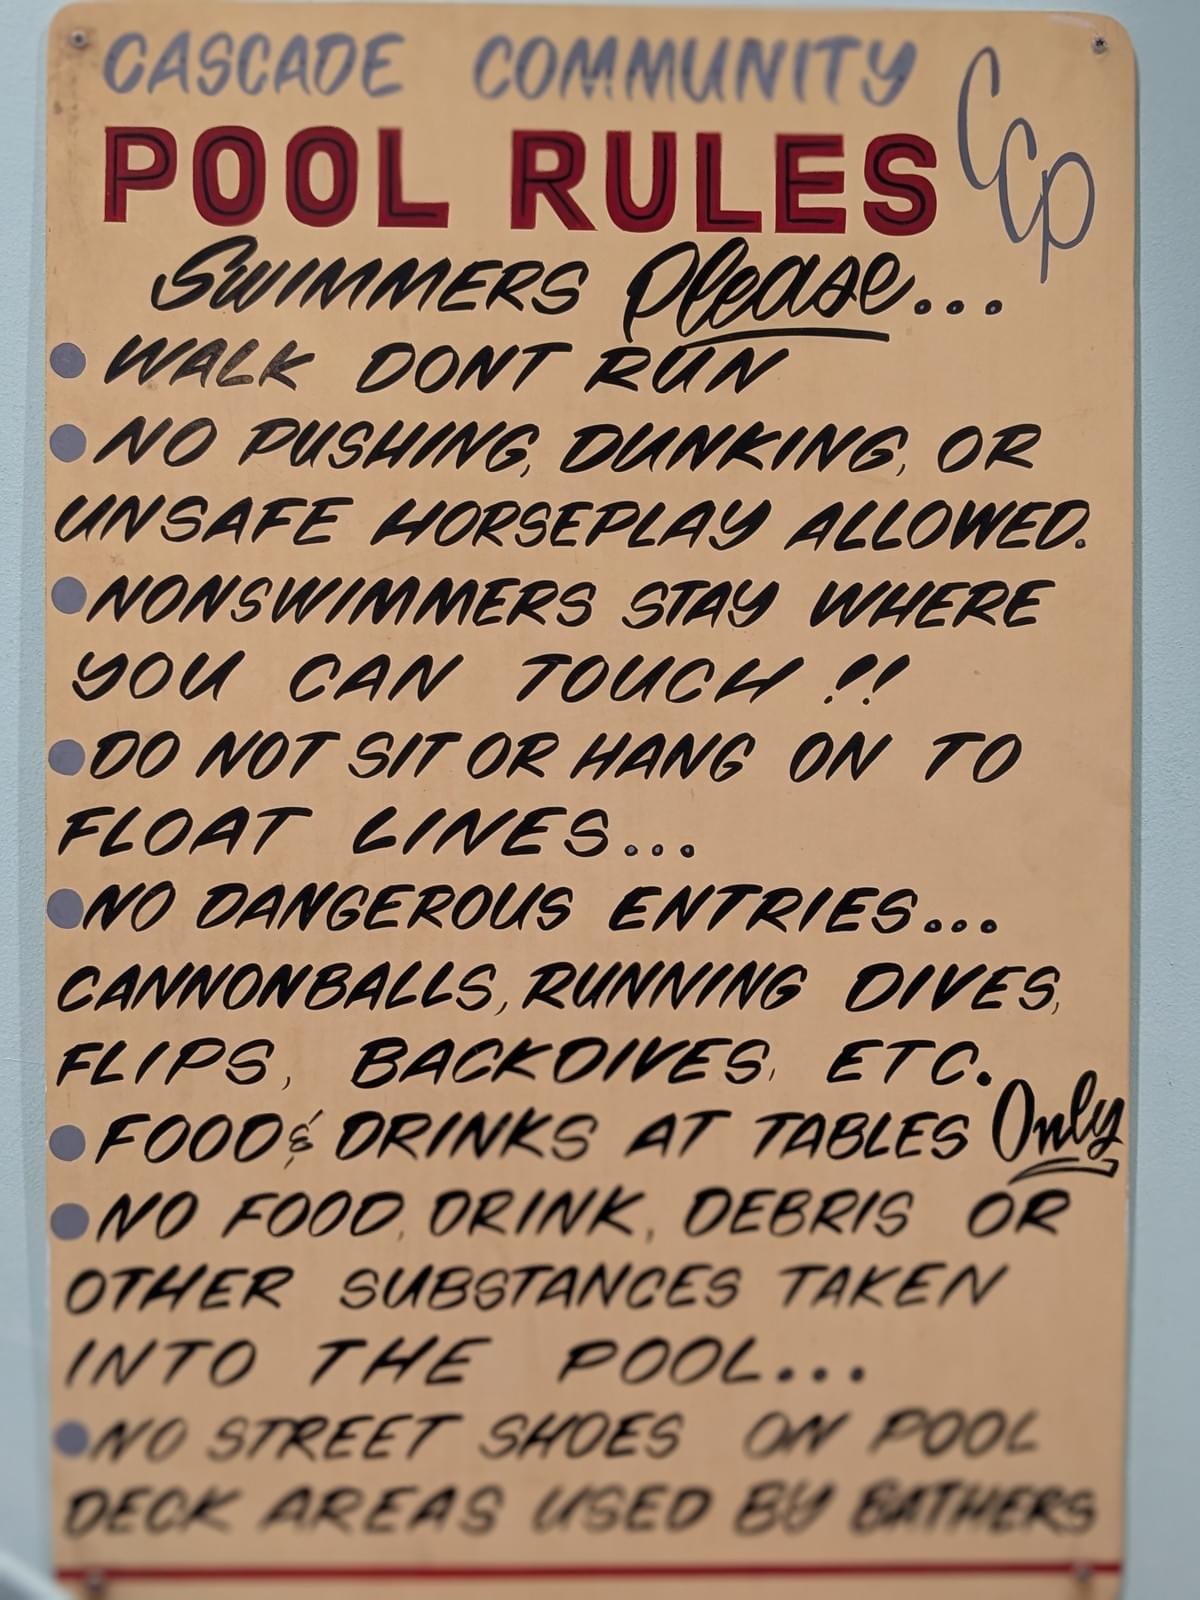 CASCADE COMMUNITY
CCP
POOL RULES
SWIMMERS Please...
WALK DONT RUN
NO PUSHING, DUNKING, OR
UNSAFE HORSEPLAY ALLOWED.
NONSWIMMERS STAY WHERE
YOU CAN TOUCH !!
DO NOT SIT OR HANG ON TO
FLOAT LINES...
NO DANGEROUS ENTRIES...
CANNONBALLS, RUNNING DIVES,
FLIPS, BACKDIVES, ETC.
FOOD & DRINKS AT TABLES Only
NO FOOD, DRINK, DEBRIS OR
OTHER SUBSTANCES TAKEN
INTO THE POOL...
NO STREET SHOES ON POOL
DECK AREAS USED BY BATHERS